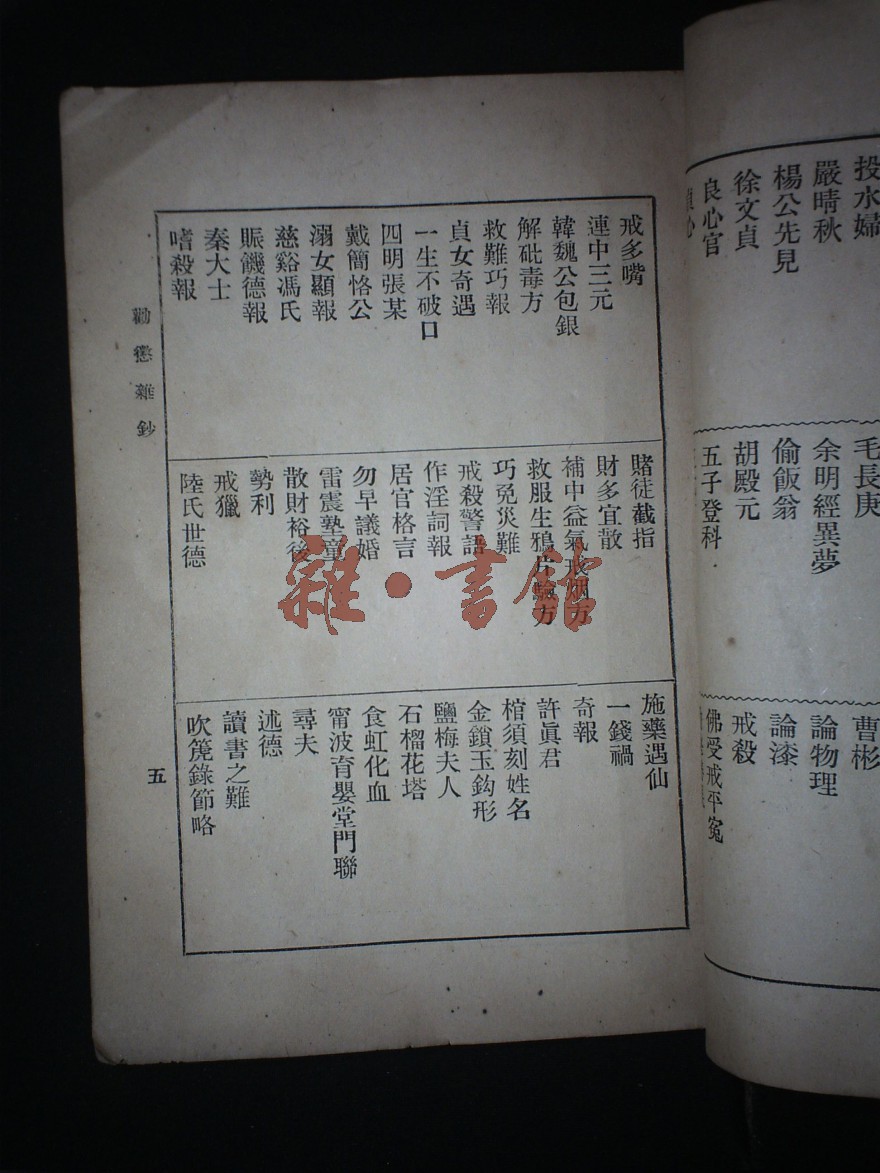 投水婦
嚴晴秋
楊公先見
徐文貞
良心官
毛長庚
余明經異夢
偷飯翁
胡殿元
五子登科
曹彬
論物理
論漆
戒殺
佛受戒平冤
戒多嘴
連中三元
韓魏公包銀
解砒毒方
救難巧報
貞女奇遇
一生不破口
四明張某
戴簡恪公
溺女顯報
慈谿馮氏
賑饑德報
秦大士
嗜殺報
賭徒截指
財多宜散
補中益氣戒烟方
救服生鴉片驗方
巧免災難
戒殺警語
作淫詞報
居官格言
勿早議婚
雷震塾童
散財裕後
勢利
戒獵
陸氏世德
施藥遇仙
一錢禍
奇報
許眞君
棺須刻姓名
金鎖玉鈎形
鹽梅夫人
石榴花塔
食虹化血
甯波育嬰堂門聯
尋夫
述德
讀書之難
吹篪錄節略
勸懲雜鈔
五
雜·書館